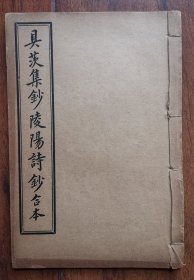 具茨集鈔陵陽詩鈔合本